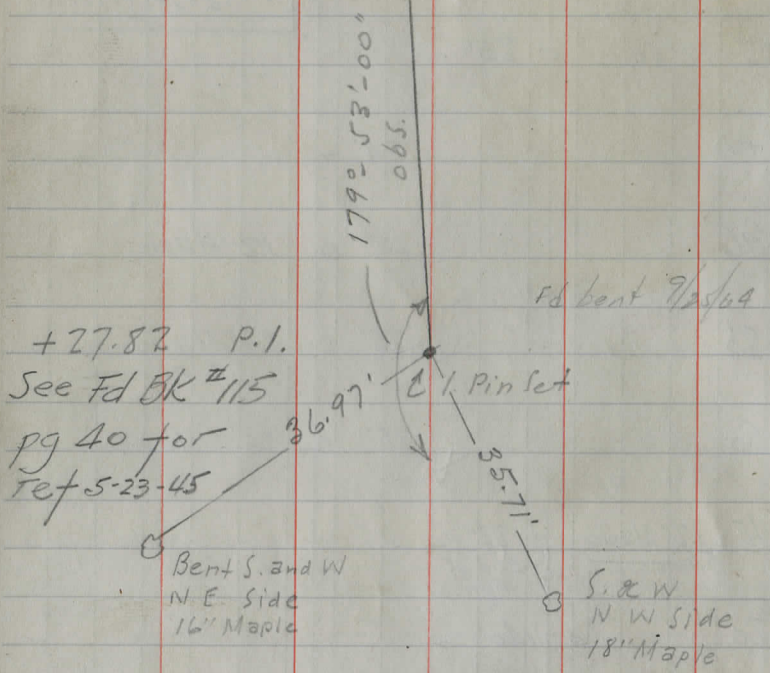 179°-53'-00"
obs.
Fd bent 9/25/64
+27.82 P.I.
See Fd BK #115
pg 40 for
ref 5-23-45
36.97'
I. Pin Set
35.71'
Bent S. and W
N E Side
16" Maple
S. & W
N W Side
18" Maple